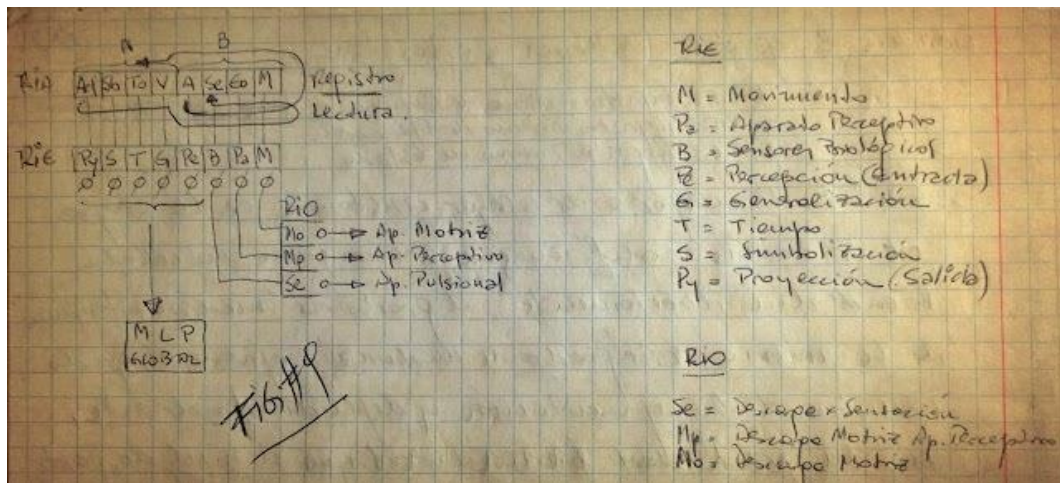 A B
RIA Ad Sb To V A Se Eo M Registro
Lectura.
RIE Py S T G Pe B Pa M
Ø Ø Ø Ø Ø Ø Ø Ø
RIO
Mo o→ Ap. Motriz
Mp o→ Ap. Perceptivo
Se o→ Ap. Pulsional
MLP
GLOBAL
FIG #9
RIE
M = Movimiento
Pa = Aparato Perceptivo
B = Sensores Biológicos
Pe = Percepción (Entrada)
G = Generalización
T = Tiempo
S = Simbolización
Py = Proyección (Salida)
RIO
Se = Descarga x Sensación
Mp = Descarga Motriz Ap. Perceptivo
Mo = Descarga Motriz